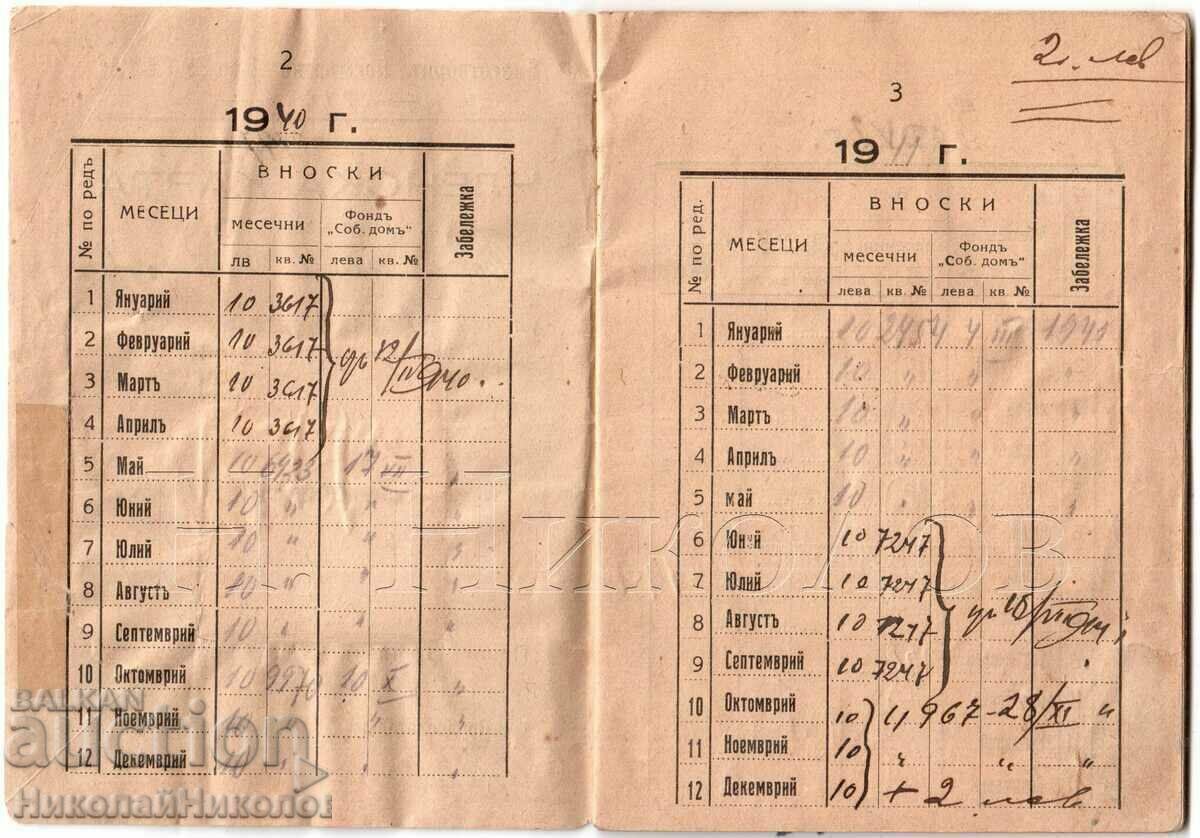 2
1940 г.
№ по редъ МЕСЕЦИ ВНОСКИ Забележка
месечни Фондъ „Соб. домъ"
лв кв. № лева кв. №
1 Януарий 10 3617
2 Февруарий 10 3617
3 Мартъ 10 3617
4 Априлъ 10 3617
5 Май 10 6933 17 VII
6 Юний 10 " "
7 Юлий 10 " "
8 Августъ 10 " "
9 Септемврий 10 " "
10 Октомврий 10 9970 10 X "
11 Ноемврий 10 " "
12 Декемврий 10 " "
2 лев
3
1941 г.
№ по ред. МЕСЕЦИ ВНОСКИ Забележка
месечни Фондъ „Соб. домъ"
лева кв. № лева кв. №
1 Януарий 10 2454 4 III 1941
2 Февруарий 10 " " "
3 Мартъ 10 " " "
4 Априлъ 10 " " "
5 май 10 " " "
6 Юний 10 7247
7 Юлий 10 7247
8 Августъ 10 7247
9 Септемврий 10 7247
10 Октомврий 10 4967-28/XI "
11 Ноемврий 10 " " "
12 Декемврий 10 + 2 лев
Н. НИКОЛОВ
BALKAN
auction
НиколайНиколов